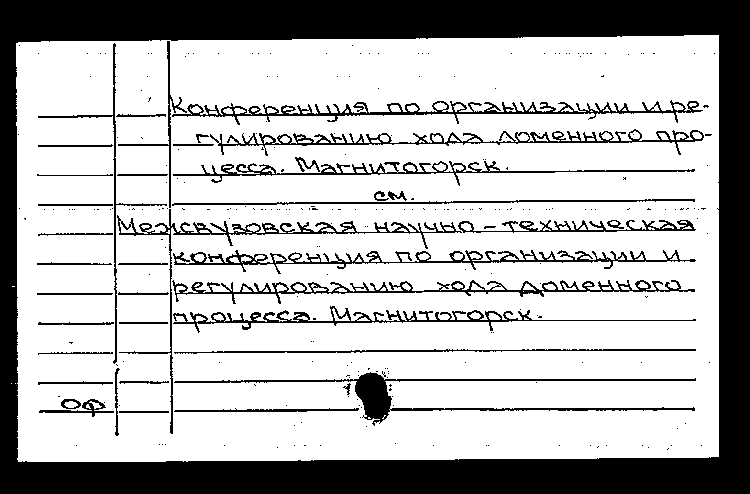 Конференция по организации и ре-
гулированию хода доменного про-
цесса. Магнитогорск.
см.
Межвузовская научно-техническая
конференция по организации и
регулированию хода доменного
процесса. Магнитогорск.
ОФ